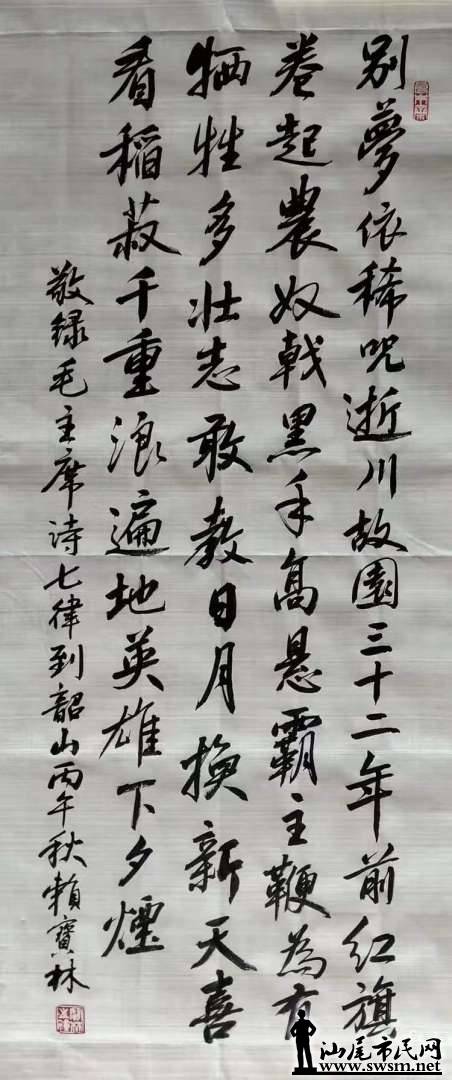 别夢依稀咒逝川故園三十二年前红旗
卷起農奴戟黑手高悬霸主鞭為有
牺牲多壮志敢教日月換新天喜
看稻菽千重浪遍地英雄下夕煙
敬録毛主席诗七律到韶山丙午秋賴寶林
汕尾市民网
www.swsm.net